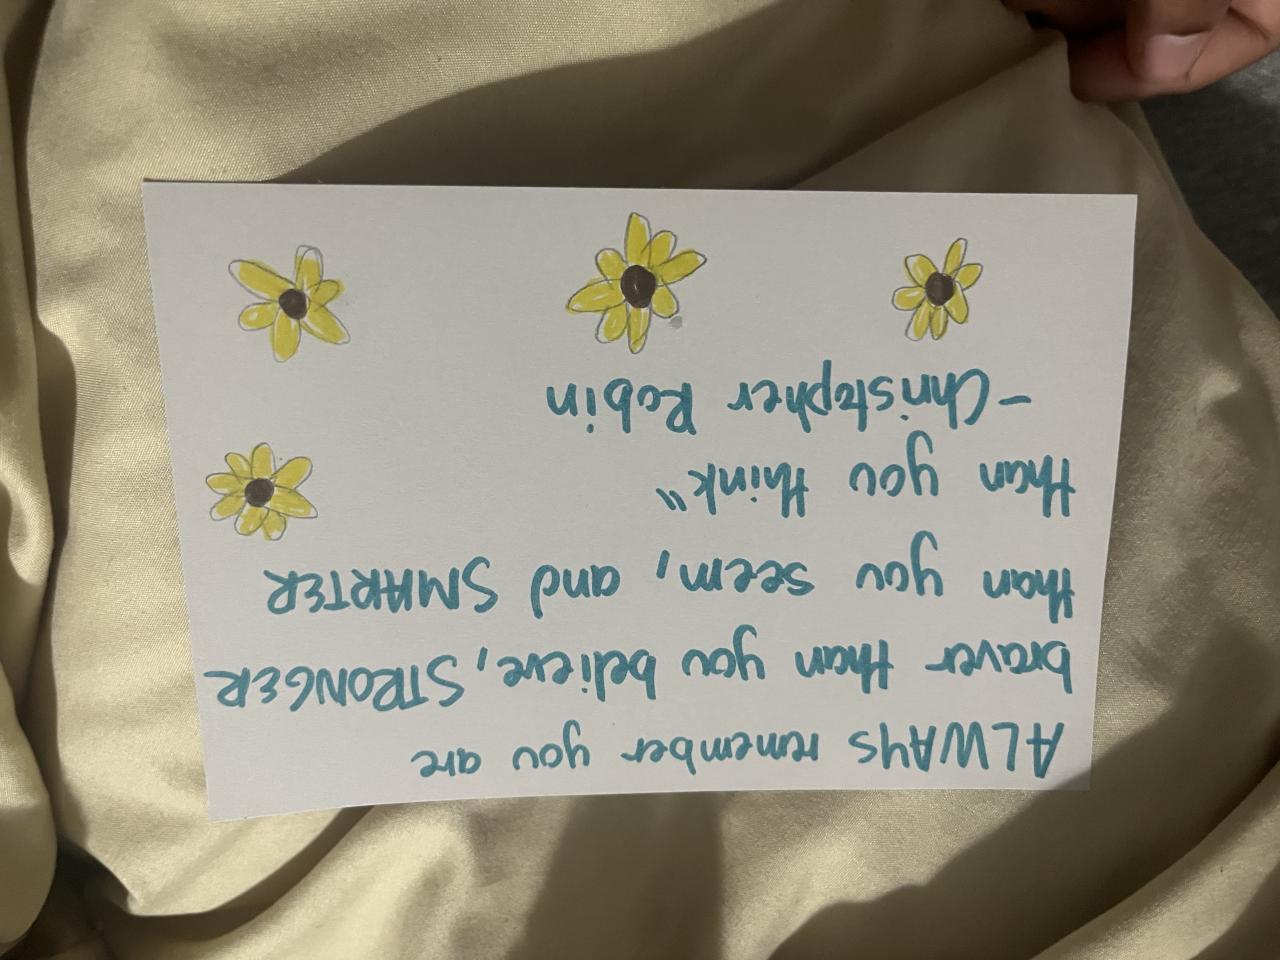 ALWAYS remember you are
braver than you believe, STRONGER
than you seem, and SMARTER
than you think"
-Christopher Robin